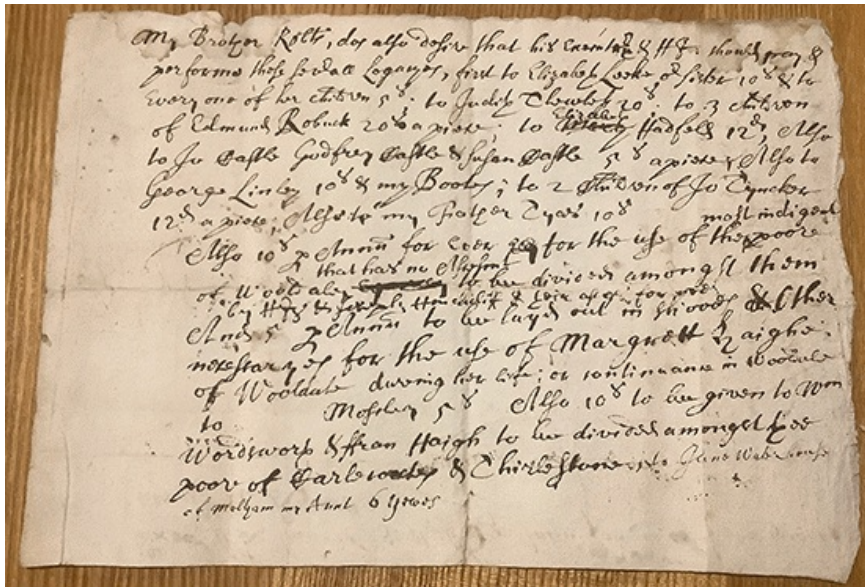 My Brother Robts, dos also desire that his Executrs & H should pay &
performe these severall Legacyes, first to Elizabeth Leeke or sister 10s & to
Every one of her Children 5s: to Judith Clewley 20s: to 3 Children
of Edmund Robuck 20s a piece: to Elizabeth Hadfeld 12d, Also
to Jo Castle Godfrey Castle & Susan Castle 5s a piece; Also to
George Linley 10s & my Bootes; to 2 Children of Jo Tyncker
12d a piece; Also to my Father Tyas 10s
most indigent
Also 10s p Annm for ever for the use of the poore
that has no
of Wooldale to be divided amongst them
by
And 5s p Annm to be layd out in shooes & Other
necessaryes for the use of Margrett Haighe
of Wooldale dureing her life; or continuance in Wooldale
to Mosley 5s Also 10s to be given to Wm
Wordsworth & ffran Haigh to be divided amongst the
poore of Carlecotes & Thirlestone; to Jane Waterhouse
of Meltham my Aunt 6 Yewes